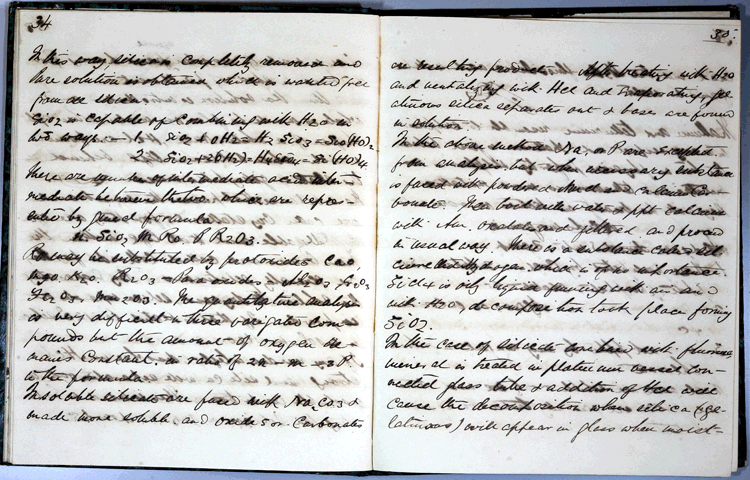 34
In this way silica is completely removed and
here solution is obtained which is washed free
from all silica.
SiO2 is capable of combining with H2O in
two ways 1. SiO2 + OH2 = H2SiO3 = SiO(HO)2
2 SiO2 + 2OH2 = H4SiO4 = Si(HO)4.
There are number of intermediate acids inter-
mediate between these, which are repre-
sented by general formula
n SiO2 m RO P R2O3.
RO may be substituted by protoxides CaO
MgO. K2O. R2O3 =
Fe2O3. Mn2O3. The quantitative analysis
is very difficult in these variegated com-
pounds but the amount of oxygen re-
mains constant in ratio of 2n - m - 3P.
in the formula.
Insoluble silicates are fused with Na2CO3 &
made more soluble, and oxides or Carbonates
35.
are resulting products. After treating with H2O
and neutralizing with HCl and Evaporating, gel-
atinous silica separates out & bases are found
in solution.
In the above method Na, or P are excepted
from analysis but when necessary substance
is fused with powdered and calcium Car-
bonate. Then boil with water & ppt calcium
with Am. oxalate and filtered, and proceed
in usual way. There is a substance called sil-
icium Hydrogen, which is of no importance.
SiCl4 is oily liquid fuming with air and
with H2O, decomposition took place forming
SiO2.
In the case of silicide combined with fluorine
mineral is treated in platinum vessel con-
nected glass tube & addition of HCl will
cause the decomposition when silica (gel-
latinous) will appear in glass when moist-